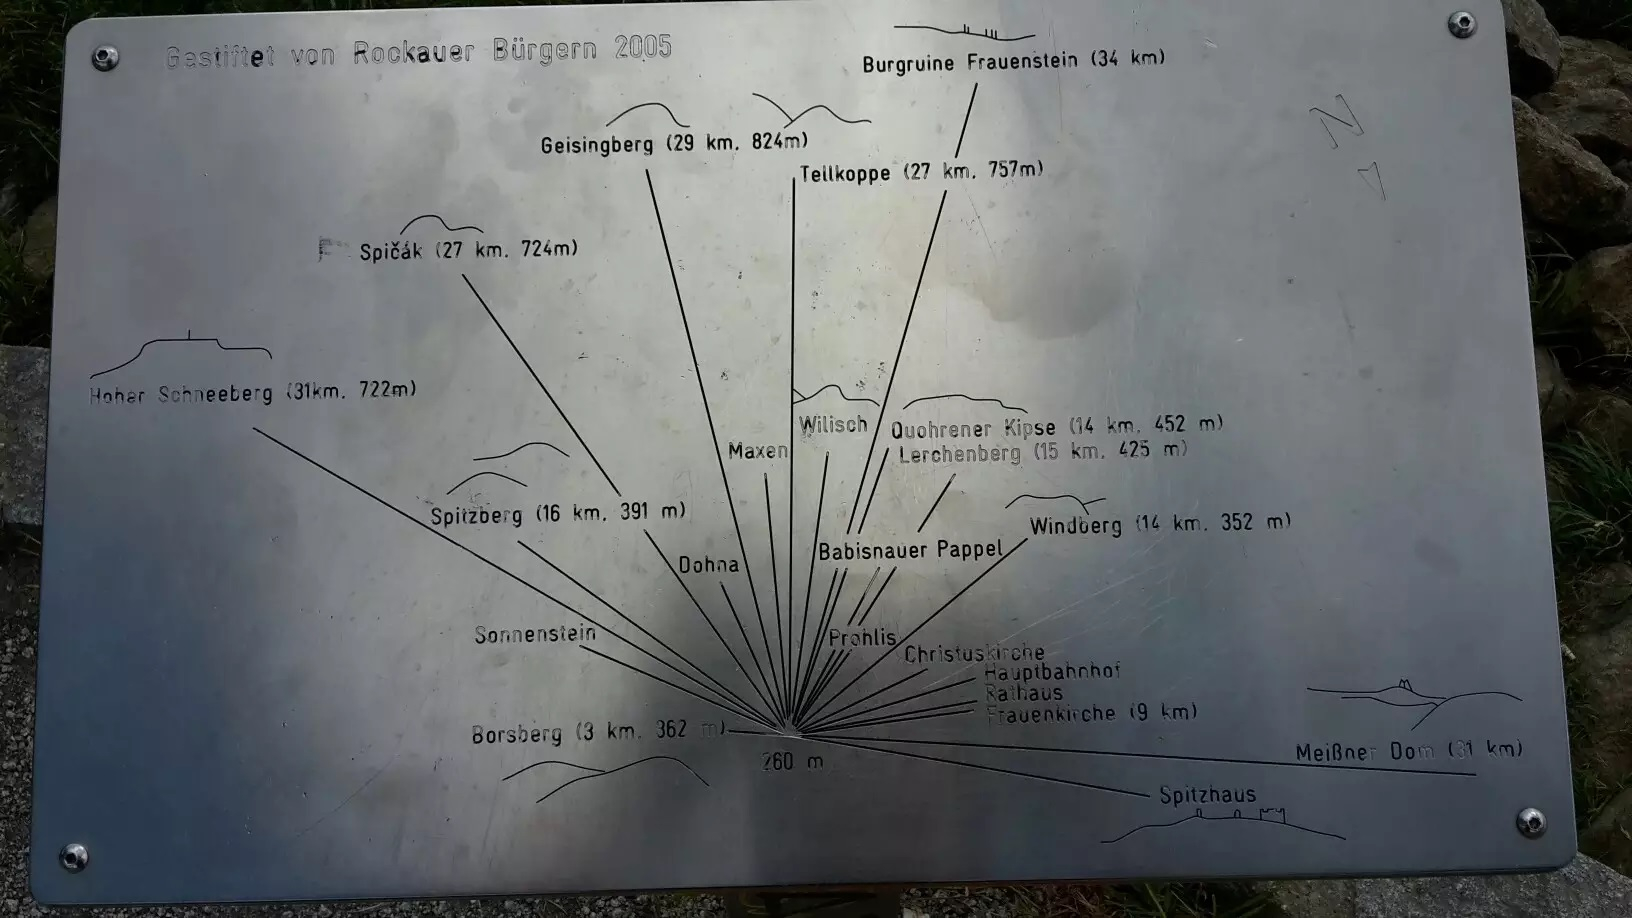 Gestiftet von Rockauer Bürgern 2005
Burgruine Frauenstein (34 km)
N
Geisingberg (29 km. 824m)
Tellkoppe (27 km. 757m)
Spičák (27 km. 724m)
Hoher Schneeberg (31km. 722m)
Wilisch
Quohrener Kipse (14 km. 452 m)
Maxen
Lerchenberg (15 km. 425 m)
Spitzberg (16 km. 391 m)
Windberg (14 km. 352 m)
Babisnauer Pappel
Dohna
Sonnenstein
Prohlis
Christuskirche
Hauptbahnhof
Rathaus
Frauenkirche (9 km)
Borsberg (3 km. 362 m)
Meißner Dom (31 km)
260 m
Spitzhaus